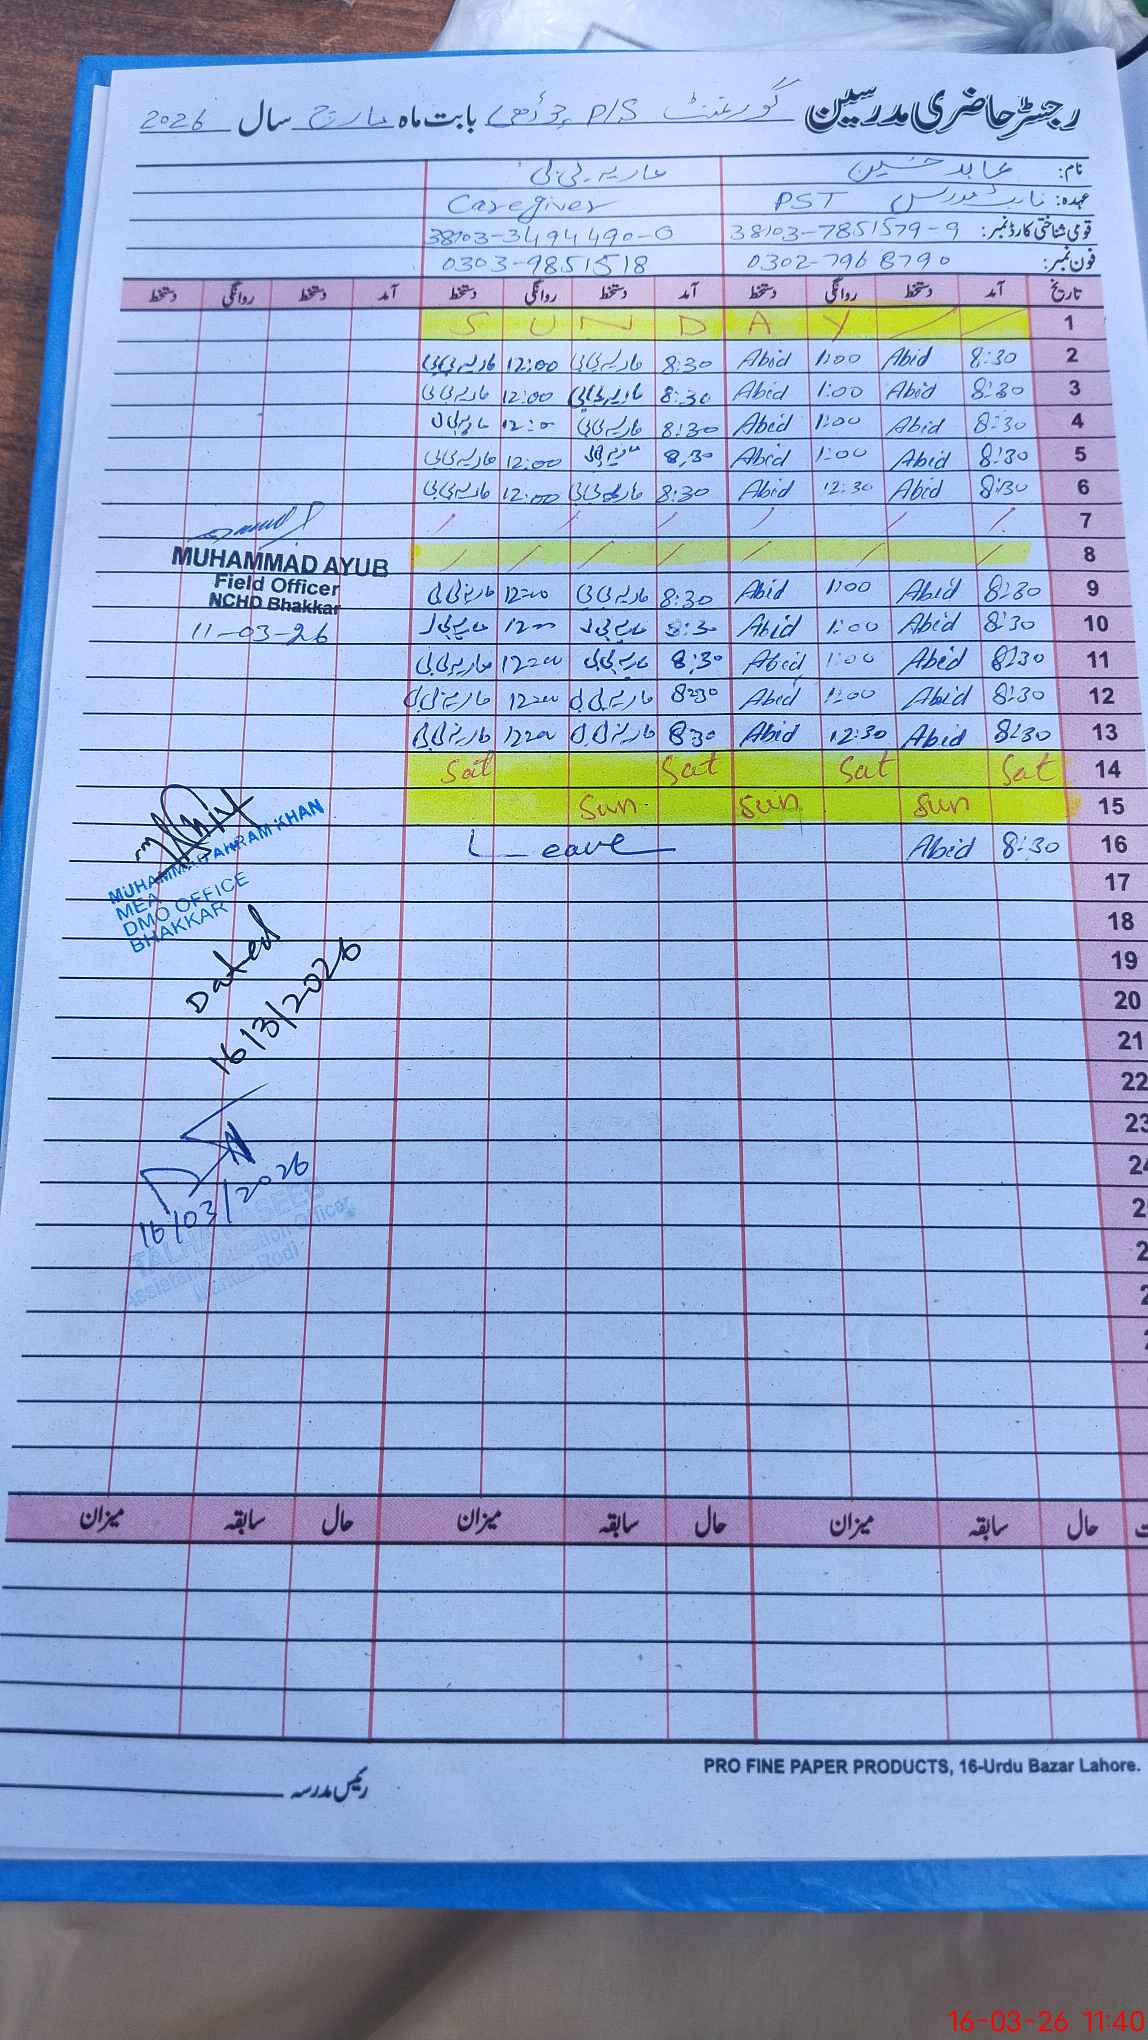 رجسٹر حاضری مدرسین گورنمنٹ P/S بابت ماہ مارچ سال 2026
نام: عابد حسین عاریہ بی بی
عہدہ: PST Caregiver
قومی شناختی کارڈ نمبر: 38103-7851579-9 38103-3494490-0
فون نمبر: 0302-7968790 0303-9851518
تاریخ آمد دستخط روانگی دستخط آمد دستخط روانگی دستخط آمد دستخط روانگی دستخط
1 SUNDAY
2 8:30 Abid 1:00 Abid 8:30 عاریہ بی بی 12:00 عاریہ بی بی
3 8:30 Abid 1:00 Abid 8:30 عاریہ بی بی 12:00 عاریہ بی بی
4 8:30 Abid 1:00 Abid 8:30 عاریہ بی بی 12:0 عاریہ بی بی
5 8:30 Abid 1:00 Abid 8:30 عاریہ بی بی 12:00 عاریہ بی بی
6 8:30 Abid 12:30 Abid 8:30 عاریہ بی بی 12:00 عاریہ بی بی
7
8
MUHAMMAD AYUB
Field Officer
NCHD Bhakkar
11-03-26
9 8:30 Abid 1:00 Abid 8:30 عاریہ بی بی 1200 عاریہ بی بی
10 8:30 Abid 1:00 Abid 8:30 عاریہ بی بی 1200 عاریہ بی بی
11 8:30 Abid 1:00 Abid 8:30 عاریہ بی بی 1200 عاریہ بی بی
12 8:30 Abid 1:00 Abid 8:30 عاریہ بی بی 1200 عاریہ بی بی
13 8:30 Abid 12:30 Abid 830 عاریہ بی بی 1200 عاریہ بی بی
14 Sat Sat Sat Sat
15 Sun Sun Sun
16 8:30 Abid Leave
17
18
19
20
21
22
23
24
MUHAMMAD AKRAM KHAN
MEA
DMO OFFICE
BHAKKAR
Dated
16/3/2026
16/03/2026
Assistant Education Officer
حال سابقہ میزان حال سابقہ میزان حال سابقہ میزان
PRO FINE PAPER PRODUCTS, 16-Urdu Bazar Lahore.
رئیس مدرسہ
16-03-26 11:40